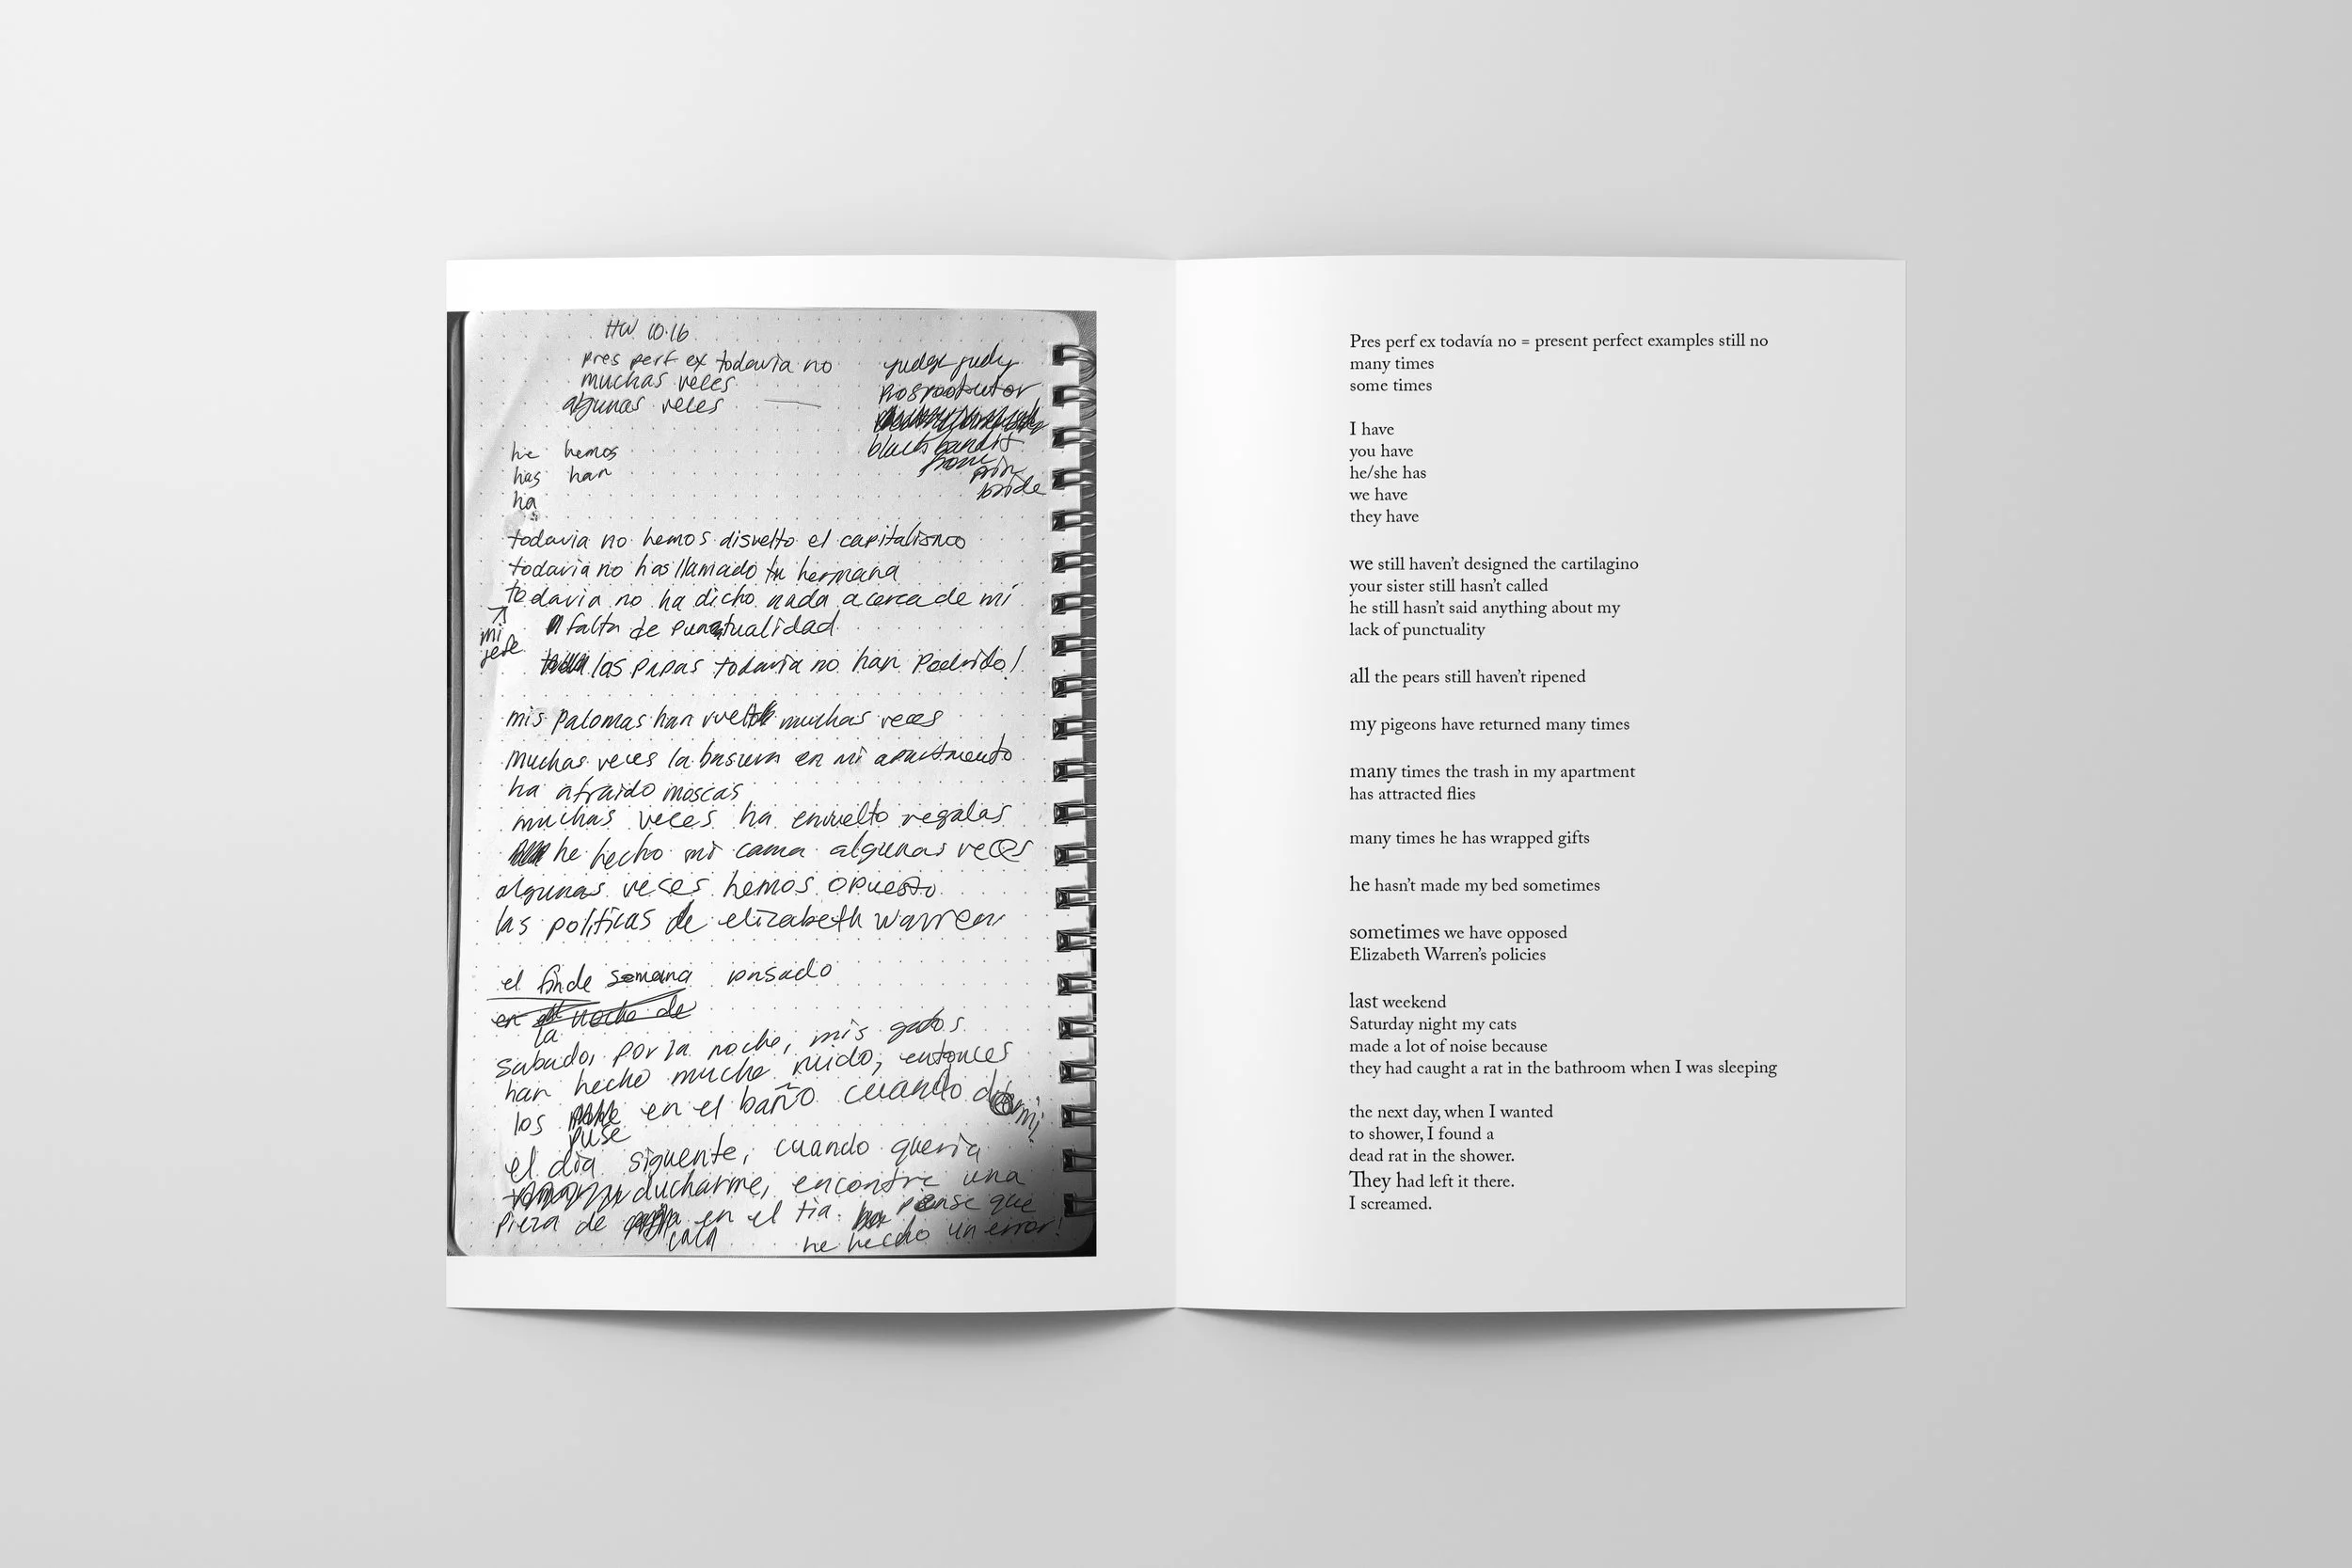 HW 10.16
pres perf ex todavía no
muchas veces
algunas veces
judge judy
black bandit
he hemos
has han
ha
todavia no hemos disuelto el capitalismo
todavia no has llamado tu hermana
todavia no ha dicho nada acerca de mi
mi jefe
falta de punctualidad
las papas todavia no han podrido!
mis palomas han vuelto muchas veces
muchas veces la basura en mi apartmento
ha atraido moscas
muchas veces ha envuelto regalas
he hecho mi cama algunas veces
algunas veces hemos opuesto
las políticas de elizabeth warren
el finde semana pasado
en la noche de
sabado, por la noche, mis gatos
han hecho mucho ruido, entonces
los puse en el baño cuando dormi
el dia siguente, cuando queria
ducharme, encontre una
pieza de caca en el tia. pense que
he hecho un error!
Pres perf ex todavía no = present perfect examples still no
many times
some times
I have
you have
he/she has
we have
they have
we still haven't designed the cartilagino
your sister still hasn't called
he still hasn't said anything about my
lack of punctuality
all the pears still haven't ripened
my pigeons have returned many times
many times the trash in my apartment
has attracted flies
many times he has wrapped gifts
he hasn't made my bed sometimes
sometimes we have opposed
Elizabeth Warren's policies
last weekend
Saturday night my cats
made a lot of noise because
they had caught a rat in the bathroom when I was sleeping
the next day, when I wanted
to shower, I found a
dead rat in the shower.
They had left it there.
I screamed.